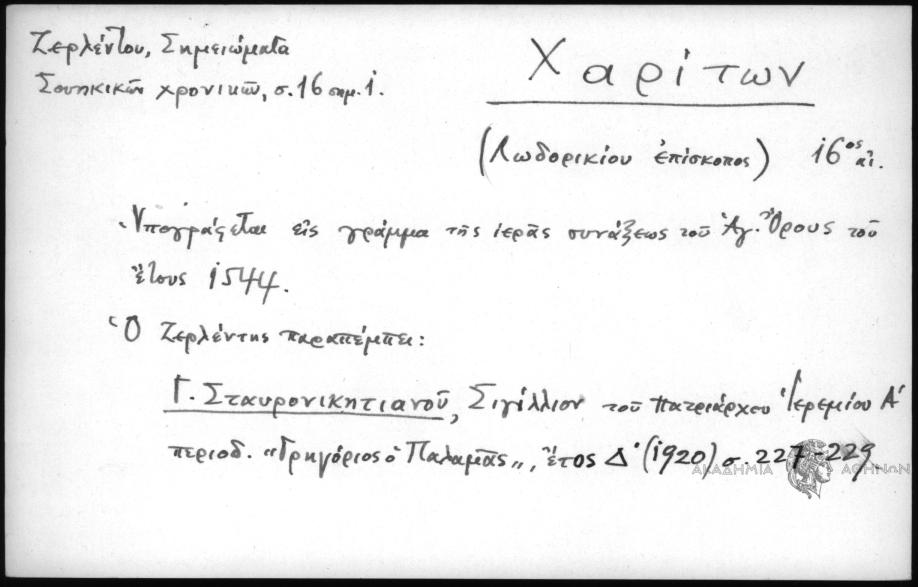 Ζερλέντου, Σημειώματα
Σουηκικῶν χρονικῶν, σ. 16 σημ. 1.
Χαρίτων
(Λωδορικίου ἐπίσκοπος) 16ος αἰ.
Ὑπογράφεται εἰς γράμμα τῆς ἱερᾶς συνάξεως τοῦ Ἁγ. Ὄρους τοῦ
ἔτους 1544.
Ὁ Ζερλέντης παραπέμπει:
Γ. Σταυρονικητιανοῦ, Σιγίλλιον τοῦ πατριάρχου Ἱερεμίου Α΄
περιοδ. "Γρηγόριος ὁ Παλαμᾶς", ἔτος Δ΄ (1920) σ. 227-229
ΑΚΑΔΗΜΙΑ ΑΘΗΝΩΝ